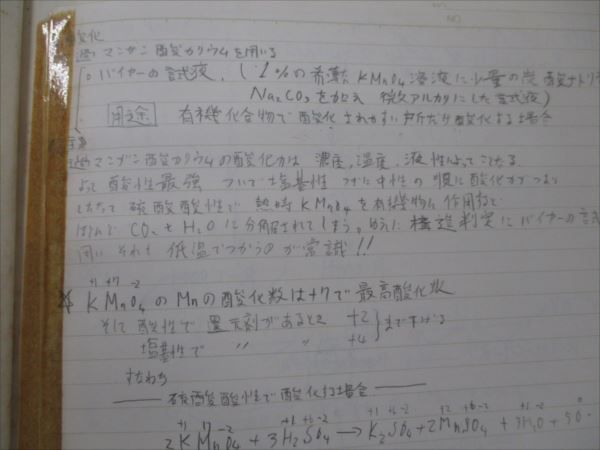 酸化
過マンガン酸カリウムを用いる
○ バイヤーの試液 1%の希薄なKMnO4溶液に少量の炭酸ナトリ
Na2CO3を加え 微アルカリにした試液)
用途 有機化合物で酸化されやすい所だけ酸化する場合
過マンガン酸カリウムの酸化力は 濃度, 温度, 液性によってことなる
よって酸性最強 ついで塩基性 つぎに中性の順に酸化力がつよい
したがって 硫酸酸性で 熱時KMnO4を有機物に作用
CO2+H2Oに分解されてしまう。ゆえに 構造判定にバイヤーの試
用い それも 低温でつかうのが常識!!
+1 +7 -2
KMnO4のMnの酸化数は+7で最高酸化数
そして酸性で還元剤があるとき +2
塩基性で 〃 〃 +4 まで下げる
すなわち
硫酸酸性で酸化する場合
2KMnO4+3H2SO4→K2SO4+2MnSO4+3H2O+5O